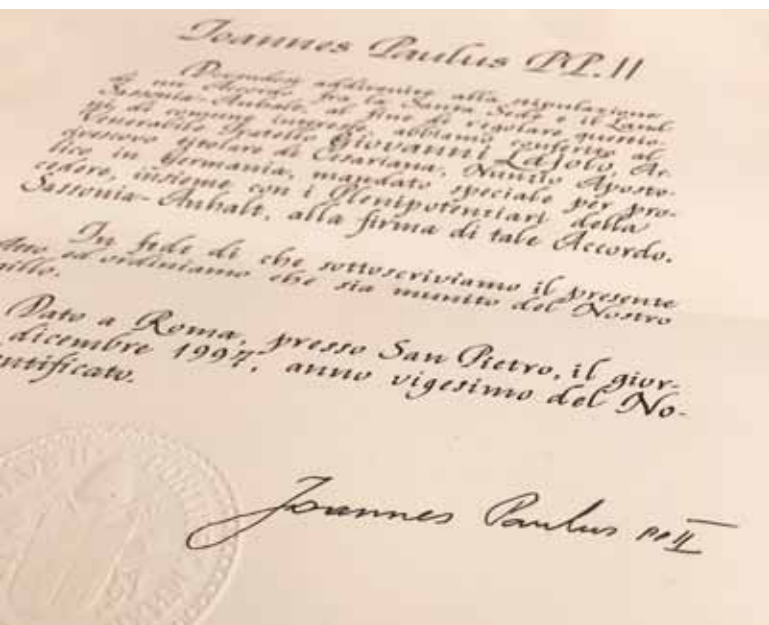 Joannes Paulus PP. II
Dovendosi addivenire alla stipulazione
di un Accordo fra la Santa Sede e il Land
Sassonia-Anhalt, al fine di regolare questio-
ni di comune interesse, abbiamo conferito al
Venerabile Fratello Giovanni Lajolo, Ar-
civescovo titolare di Cesariana, Nunzio Aposto-
lico in Germania, mandato speciale per pro-
cedere, insieme con i Plenipotenziari della
Sassonia-Anhalt, alla firma di tale Accordo.
In fede di che sottoscriviamo il presente
ed ordiniamo che sia munito del Nostro
Dato a Roma, presso San Pietro, il gior-
dicembre 1997, anno vigesimo del No-
ntificato.
Joannes Paulus PP II